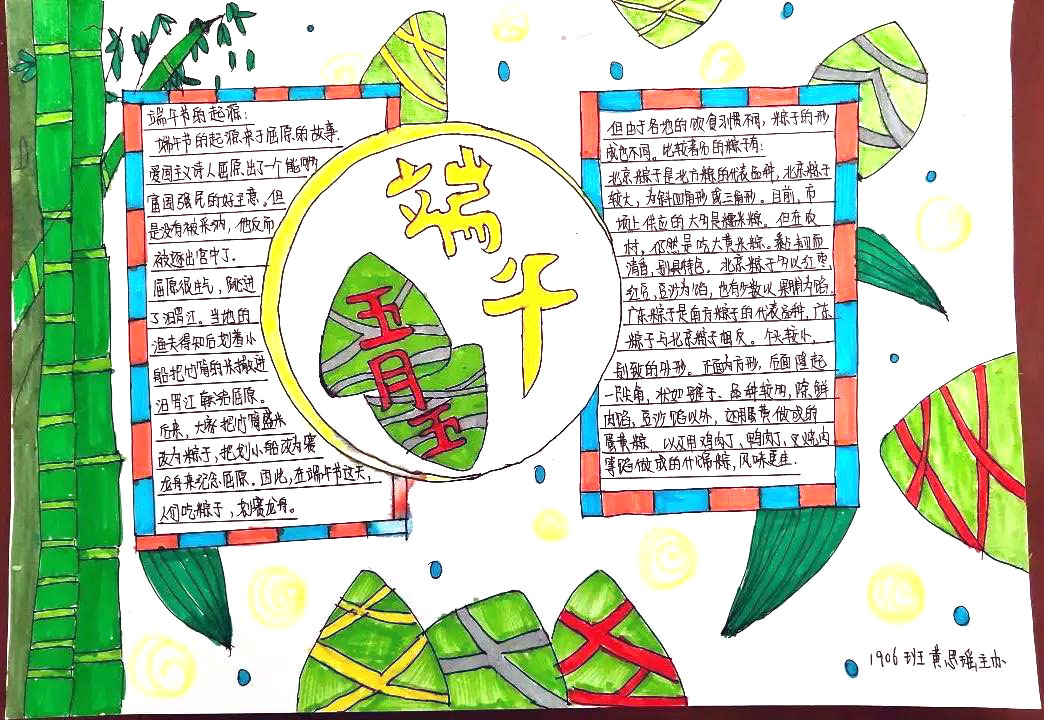 端午节的起源:
端午节的起源来于屈原的故事.
爱国主义诗人屈原出了一个能够
富国强民的好主意。但
是没有被采纳,他反而
被逐出宫中了.
屈原很生气,跳进
了汨罗江。当地的
渔夫得知后划着小
船把他的米撒进
汨罗江 屈原。
后来,大家把 盛米
改为粽子,把划小船改为赛
龙舟来纪念屈原。因此,在端午节这天,
人们吃粽子,划赛龙舟。
端午
五月五
但由于各地的饮食习惯不同,粽子的形
成也不同。比较著名的粽子有:
北京粽子是北方粽的代表品种,北京粽子
较大,为斜四角形或三角形。目前,市
场上供应的大多是糯米粽。但在农
村,仍然是吃大黄米粽。黏韧而
清香,别具特色。北京粽子多以红枣,
红豆,豆沙为馅,也有少数以果脯为馅.
广东粽子是南方粽子的代表品种,广东
粽子与北京粽子相反。个头较小,
别致的外形。正面为方形,后面隆起
一只尖角,状如 。品种较多,除鲜
肉馅、豆沙馅以外,还用蛋黄做成的
蛋黄粽,以及用鸡肉丁,鸭肉丁,叉烧肉
等馅做成的什锦粽,风味更佳.
1906班黄思瑶主办